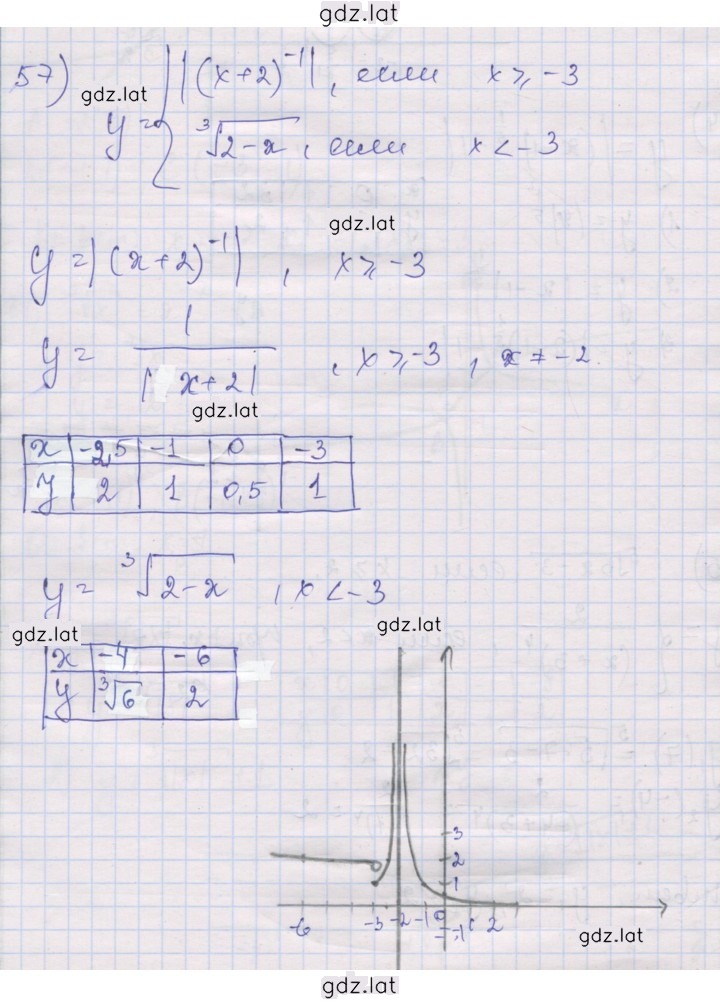 gdz.lat
57) y = { |(x+2)⁻¹|, если x ⩾ -3
gdz.lat
∛(2-x), если x < -3
gdz.lat
y = |(x+2)⁻¹| , x ⩾ -3
y = 1/|x+2| , x ⩾ -3 , x ≠ -2.
gdz.lat
x -2,5 -1 0 -3
y 2 1 0,5 1
y = ∛(2-x) , x < -3
gdz.lat
gdz.lat
x -4 -6
y ∛6 2
3
2
1
-6 -3 -2 -1 0 1 2
-1
gdz.lat
gdz.lat